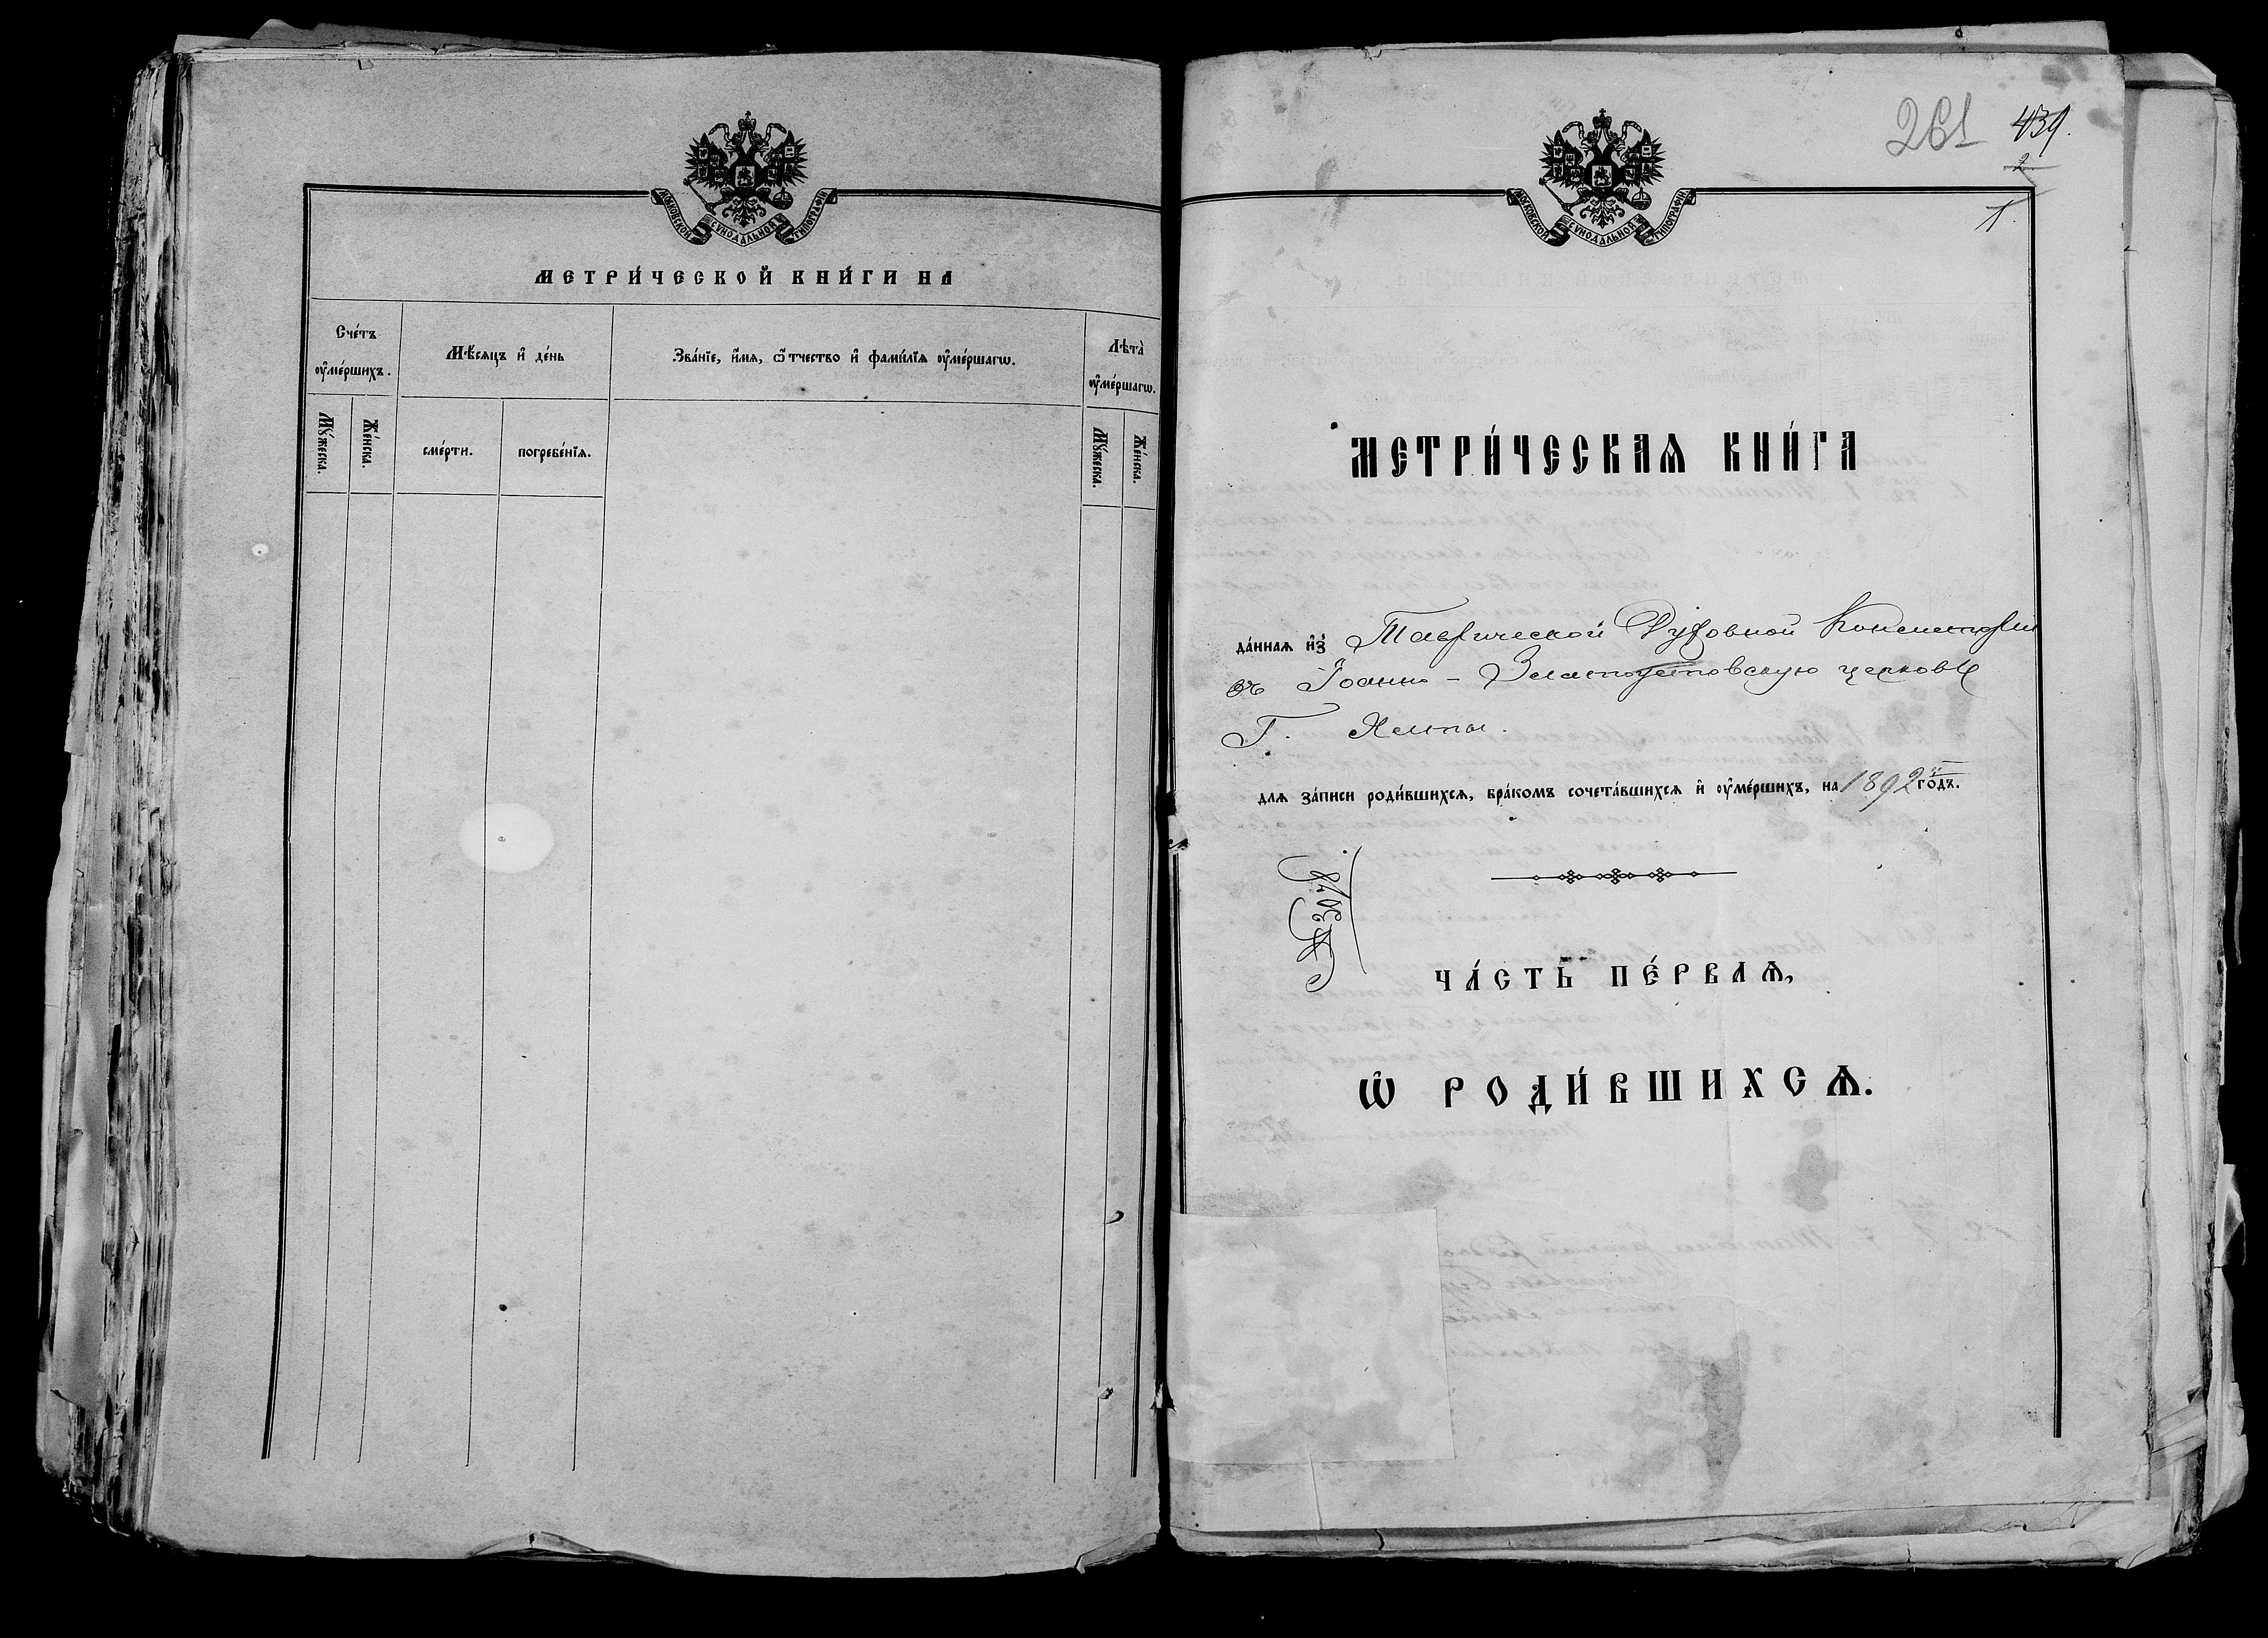 МОСКОВСКОЙ СѴНОДАЛЬНОЙ ТИПОГРАФІИ
МЕТРИ́ЧЕСКОЙ КНИ́ГИ НА
Сче́тъ
ᲂу҆ме́ршихъ.
Мѣ́сяцъ и҆ де́нь
Зва́нїе, и҆́мѧ, ѻ҆́тчество и҆ фами́лїѧ ᲂу҆ме́ршагѡ.
Лѣта̀
ᲂу҆ме́ршагѡ.
Мꙋ́жеска.
Же́нска.
сме́рти.
погребе́нїѧ.
Мꙋ́жеска.
Же́нска.
261 439.
2
1.
МОСКОВСКОЙ СѴНОДАЛЬНОЙ ТИПОГРАФІИ
МЕТРИ́ЧЕСКАѦ КНИ́ГА
да́ннаѧ и҆з̾ Таврической Духовной Консисторіи
въ Іоанно-Златоустовскую церковь
Г. Ялты.
для за́писи роди́вшихсѧ, бра́комъ сочета́вшихсѧ и҆ ᲂу҆ме́ршихъ, на 1892 й го́дъ.
№ 3978
ЧА́СТЬ ПЕ́РВАѦ,
Ѡ҆ РОДИ́ВШИХСѦ.